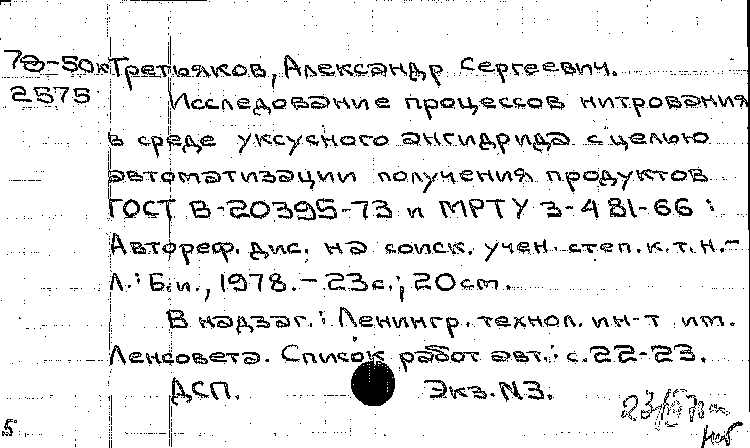 78-50к Третьяков, Александр Сергеевич.
2575 Исследование процессов нитрования
в среде уксусного ангидрида с целью
автоматизации получения продуктов
ГОСТ В-20395-73 и МРТУ 3-481-66 :
Автореф. дис. на соиск. учен. степ. к.т.н.-
Л.: Б.и., 1978. - 23с.; 20см.
В надзаг.: Ленингр. технол. ин-т им.
Ленсовета. Список работ авт.: с. 22-23.
ДСП. Экз. N3.
5